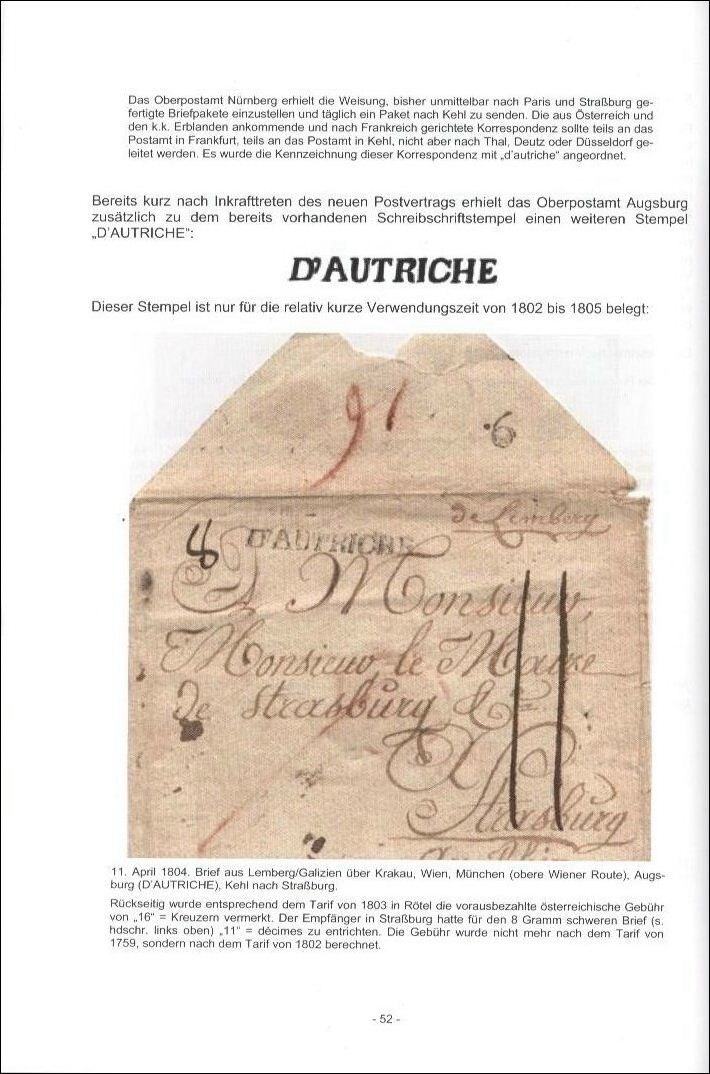 Das Oberpostamt Nürnberg erhielt die Weisung, bisher unmittelbar nach Paris und Straßburg ge-
fertigte Briefpakete einzustellen und täglich ein Paket nach Kehl zu senden. Die aus Österreich und
den k.k. Erblanden ankommende und nach Frankreich gerichtete Korrespondenz sollte teils an das
Postamt in Frankfurt, teils an das Postamt in Kehl, nicht aber nach Thal, Deutz oder Düsseldorf ge-
leitet werden. Es wurde die Kennzeichnung dieser Korrespondenz mit „d'autriche" angeordnet.
Bereits kurz nach Inkrafttreten des neuen Postvertrags erhielt das Oberpostamt Augsburg
zusätzlich zu dem bereits vorhandenen Schreibschriftstempel einen weiteren Stempel
„D'AUTRICHE":
D'AUTRICHE
Dieser Stempel ist nur für die relativ kurze Verwendungszeit von 1802 bis 1805 belegt:
91
6
de Lemberg
8 D'AUTRICHE
A Monsieur,
Monsieur le Maire
de Strasburg &
à
Strasburg
11
11. April 1804. Brief aus Lemberg/Galizien über Krakau, Wien, München (obere Wiener Route), Augs-
burg (D'AUTRICHE), Kehl nach Straßburg.
Rückseitig wurde entsprechend dem Tarif von 1803 in Rötel die vorausbezahlte österreichische Gebühr
von „16" = Kreuzern vermerkt. Der Empfänger in Straßburg hatte für den 8 Gramm schweren Brief (s.
hdschr. links oben) „11" = décimes zu entrichten. Die Gebühr wurde nicht mehr nach dem Tarif von
1759, sondern nach dem Tarif von 1802 berechnet.
- 52 -